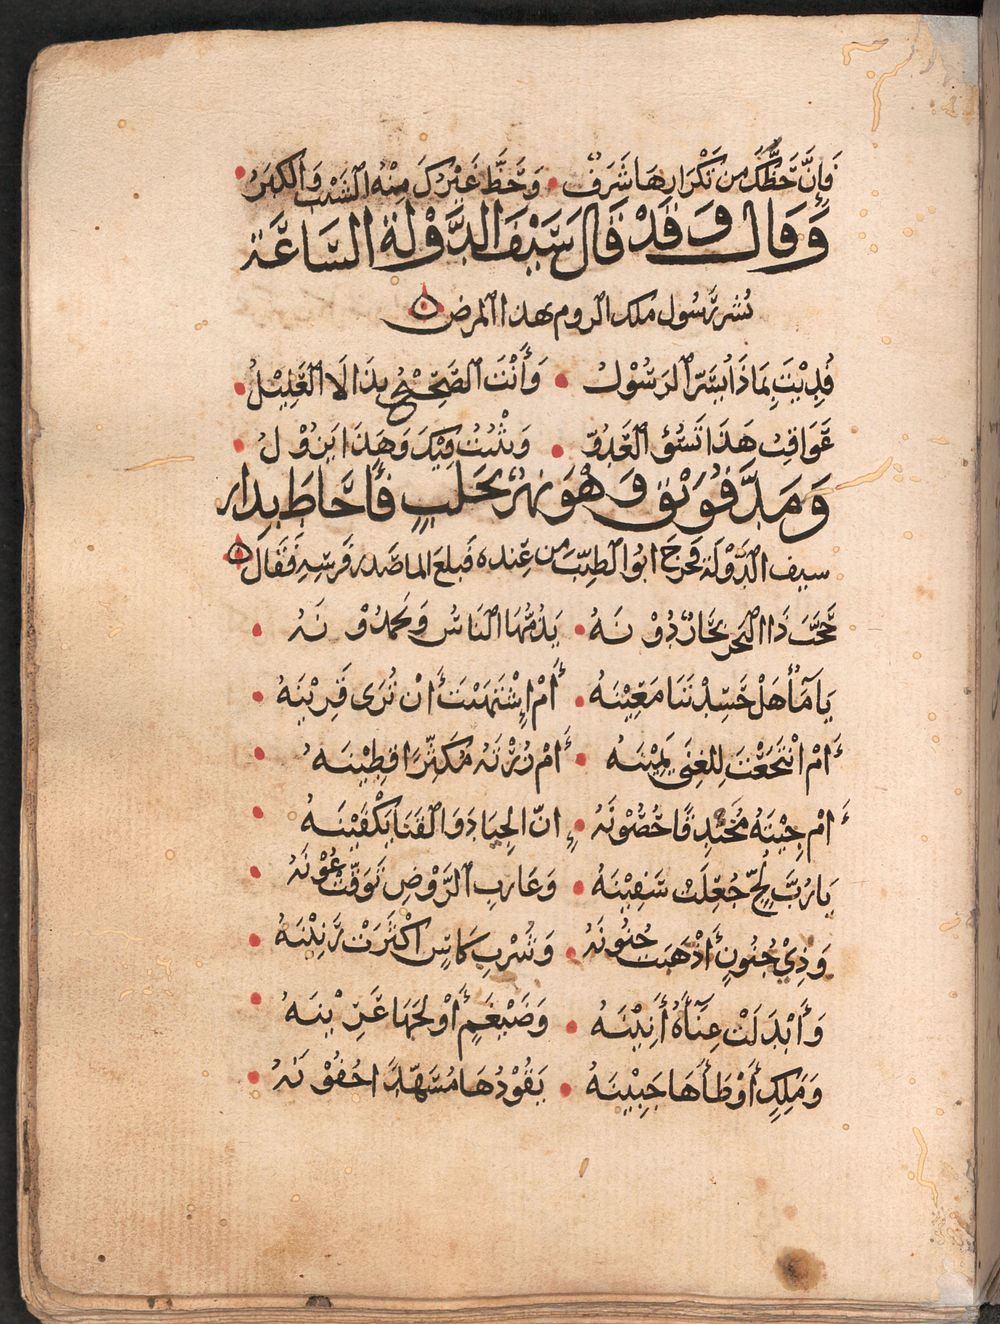 فَإِنَّ حَظَّكَ مِن تَكْرَارِهَا شَرَفٌ • وَحَظَّ غَيْرِكَ مِنْهُ الشَّيْبُ وَالْكِبَرُ •
وَقَالَ وَقَدْ قَالَ سَيْفُ الدَّوْلَةِ السَّاعَةَ
يُسَرُّ رَسُول مَلِك الروم بهذا المرض
فُدِيْتَ بِمَاذَا يُسَرُّ الرَسُوْلُ • وَأَنْتَ الصَّحِيْحُ بِذَا لَا الْعَلِيْلُ •
عَوَاقِبُ هَذَا تَسُوُّ الْعَدُوَّ • وَتَثْبُتُ فِيْكَ وَهَذَا يَزُوْلُ •
وَمَدَّ قُوَيْق وَهْوَ نهرٌ بحَلَبٍ فَأَحَاطَ بِدَار
سيف الدَّوْلَة فَخَرَجَ ابو الطيّب من عِنْده فبلغ الما صَدر فَرَسِهِ فَقَال
حَجَّبَ ذَا الْبَحرَ بِحَارٌ دُوْنَهُ • يَذُمُّهَا النَاسُ وَيَحْمَدُوْنَهُ •
يَا مَأُ هَلْ حَسَدْتَنَا مَعِيْنَهُ • أَمْ إِشْتَهَيْتَ أَنْ تُرَى قَرِيْنَهُ •
أَمْ انْتَجَعْتَ لِلغِنَى يَمِيْنَهُ • أَمْ زُرْتَهُ مُكَثِّرًا قَطِيْنَهُ •
أَمْ جِيْتَهُ مُخَنْدِقًا حُصُوْنَهُ • إِنّ الجِيَادَ وَالْقَنَا يَكْفِيْنَهُ •
يَا رُبَّ لُجٍّ جُعِلَتْ سَفِيْنَهُ • وَعَازِبِ الرَّوْضِ تَوَفَّتْ عُوْنَهُ •
وَذِيْ جُنُونٍ أَذْهَبَتْ جُنُونَهُ • وَشَرْبِ كَاسٍ اكْثَرَتْ رَنِيْنَهُ •
وَأَبْدَلَتْ غِنَآءَهُ أَنِيْنَهُ • وَضَيْغَمٍ أَوْلَجَهَا عَرِيْنَهُ •
وَمَلِكٍ أَوْطَأَهَا جَبِيْنَهُ • يَقُوْدُهَا مُسَهَّدًا جُفُوْنَهُ •